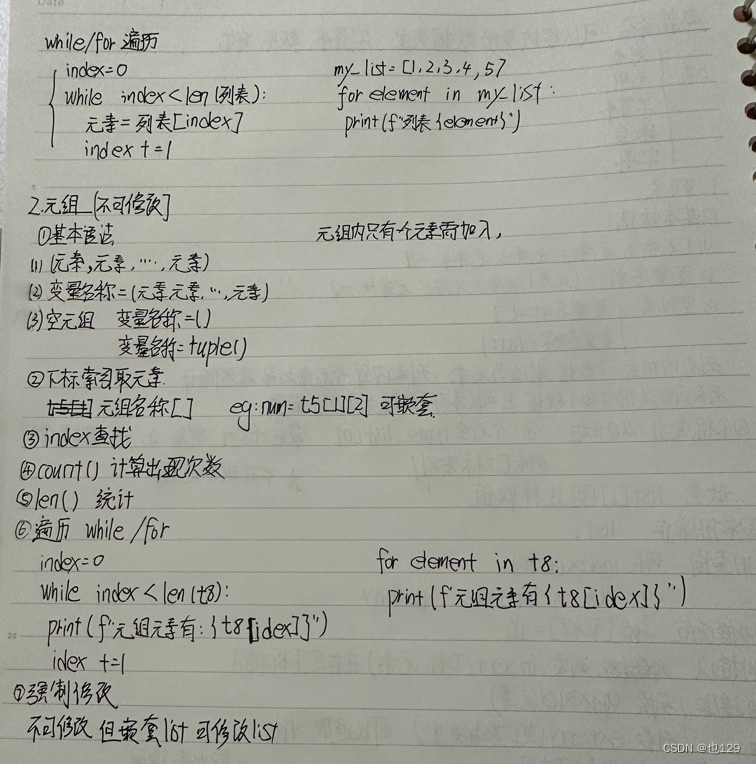 while/for 遍历
index=0
while index<len(列表):
元素=列表[index]
index +=1
my_list=[1,2,3,4,5]
for element in my_list:
print(f"列表{element}")
2.元组 [不可修改]
①基本语法
元组内只有个元素需加入,
(1) (元素,元素,…,元素)
(2) 变量名称=(元素元素,…,元素)
(3)空元组 变量名称=()
变量名称=tuple()
②下标索引取元素
元组名称[] eg:num=t5[1][2] 可嵌套
③index查找
④count() 计算出现次数
⑤len() 统计
⑥遍历 while/for
index=0
while index<len(t8):
print(f"元组元素有:{t8[idex]}")
idex +=1
for element in t8:
print(f"元组元素有{t8[idex]}")
⑦强制修改
不可修改 但嵌套list 可修改list
20
CSDN @也129